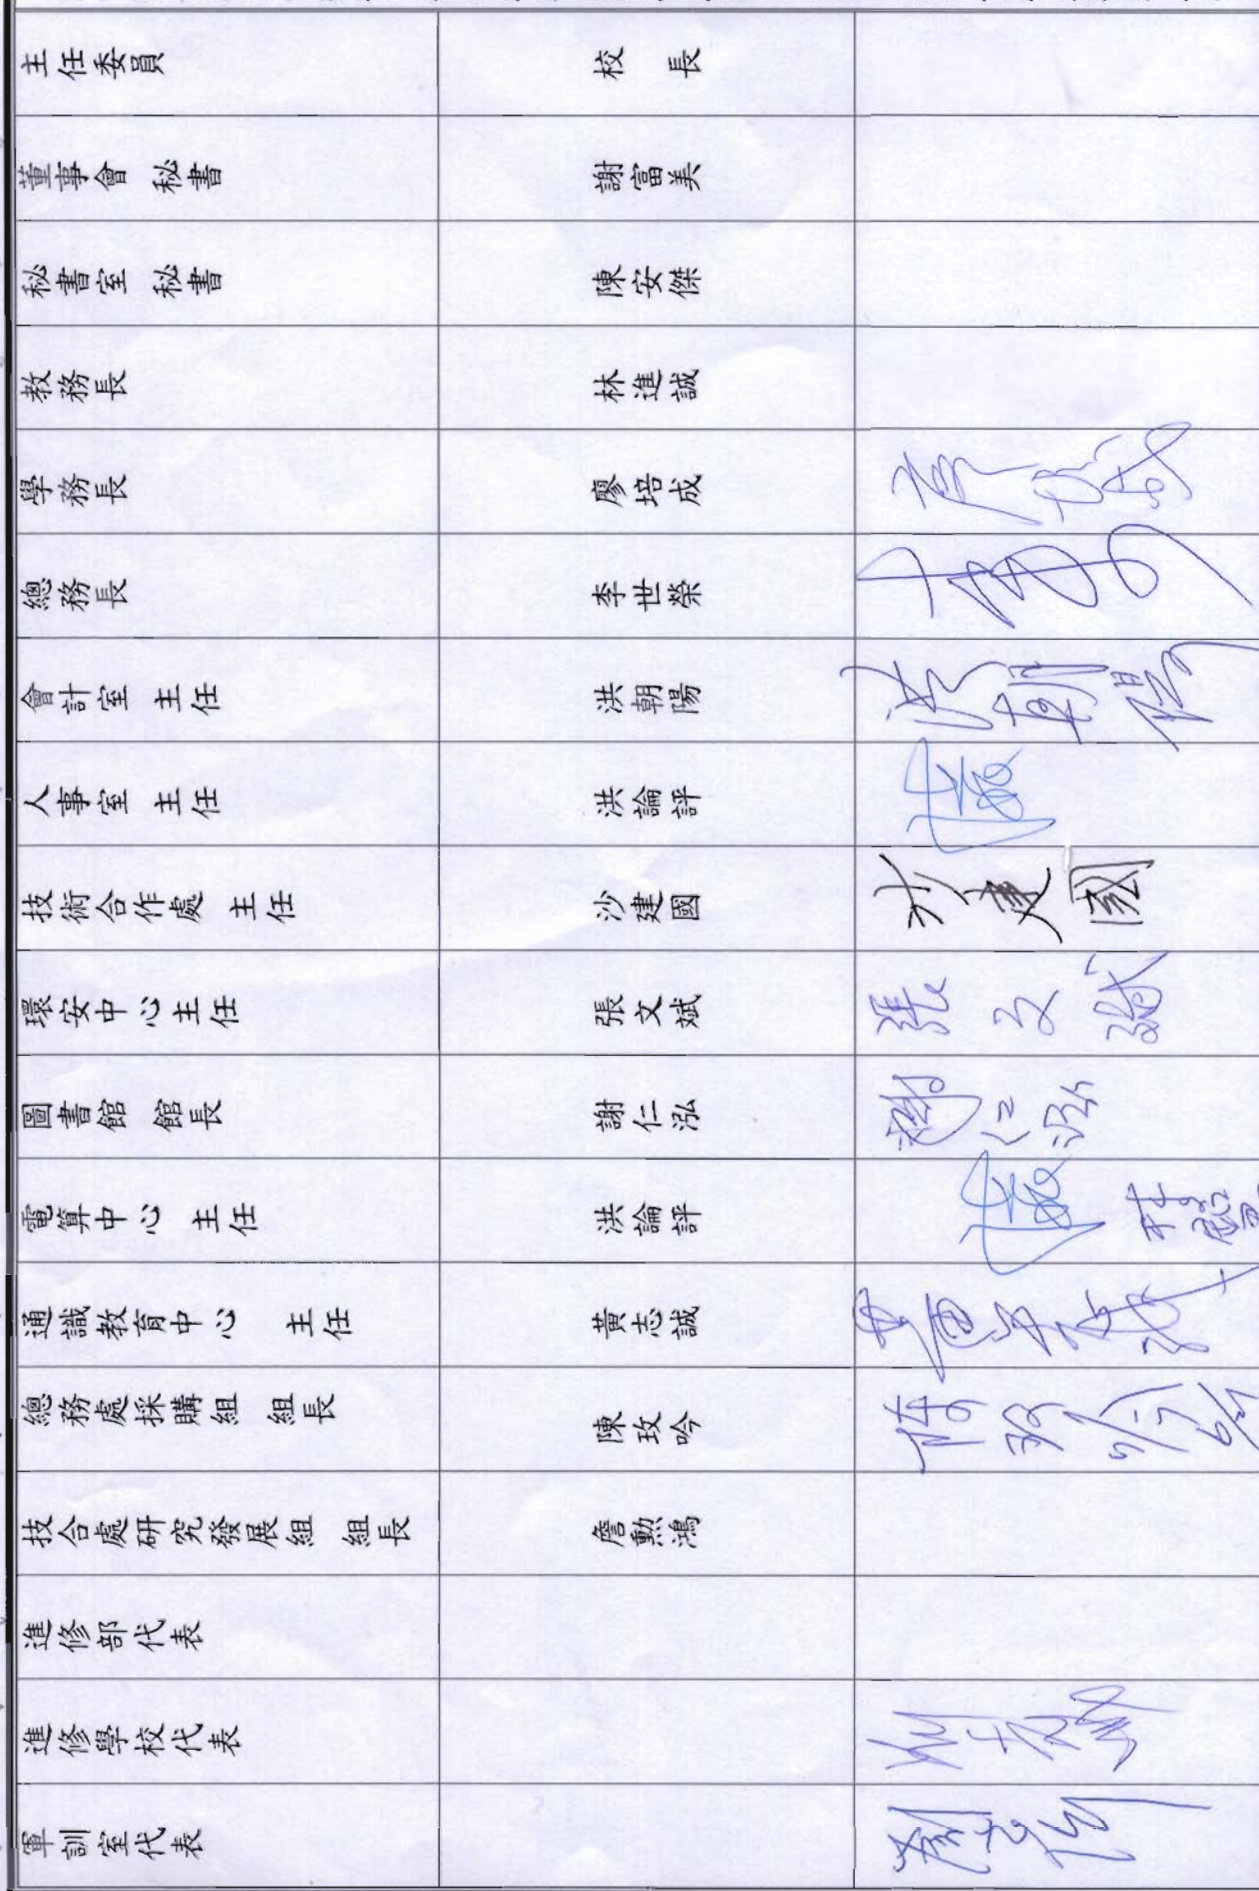 主任委員 校長
董事會 秘書 謝富美
秘書室 秘書 陳安傑
教務長 林進誠
學務長 廖培成
總務長 李世榮
會計室 主任 洪朝陽 洪朝陽
人事室 主任 洪論評
技術合作處 主任 沙建國 沙建國
環安中心主任 張文斌 張文斌
圖書館 館長 謝仁泓 謝仁泓
電算中心 主任 洪論評
通識教育中心 主任 黃志誠 黃志誠
總務處採購組 組長 陳玫吟 陳玫吟
技合處研究發展組 組長 詹勲鴻
進修部代表
進修學校代表
軍訓室代表